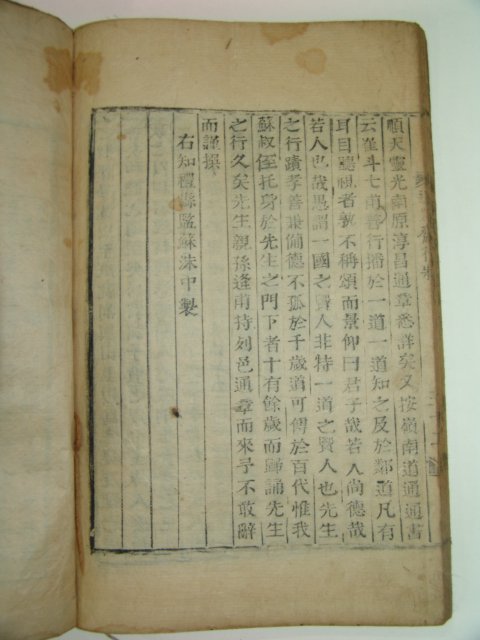 順天靈光南原淳昌通章悉詳矣又按嶺南道通書
云崔斗七甫善行播於一道一道知之及於鄰道凡有
耳目聽視者孰不稱頌而景仰曰君子哉若人尚德哉
若人也哉愚謂一國之賢人非特一道之賢人也先生
之行蹟孝善兼備德不孤於千歲道可傳於百代惟我
蘇叔侄托身於先生之門下者十有餘歲而歸誦先生
之行久矣先生親孫逢甫持列邑通章而來予不敢辭
而謹撰
右知禮縣監蘇洙中製